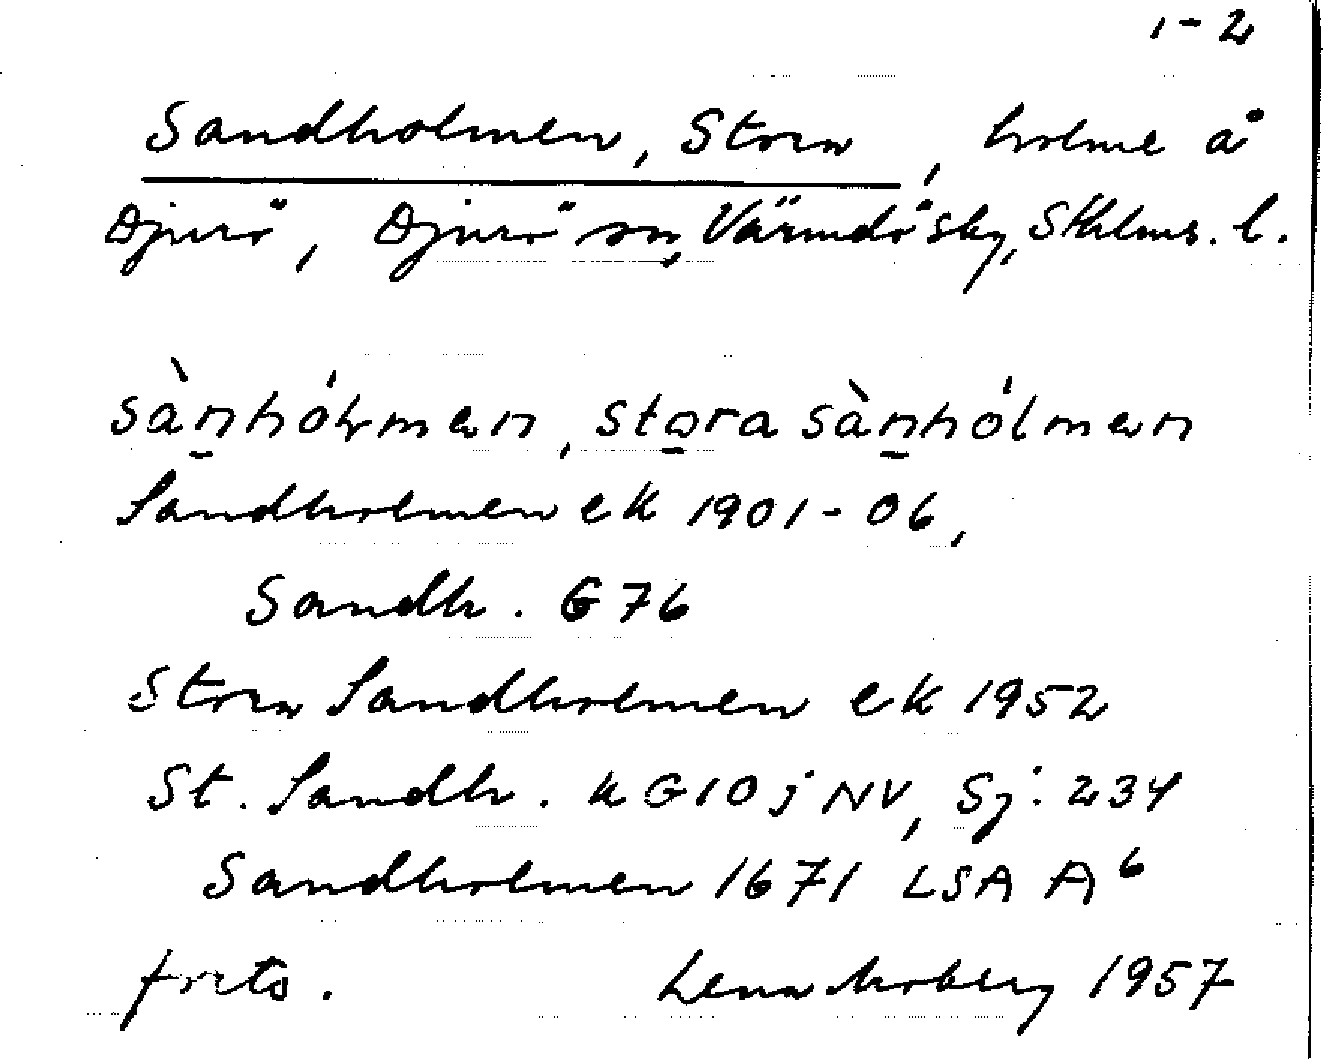 1-2
Sandholmen, Stora, holme å
Djurö, Djurö sn, Värmdö sky, Sthlms. l.
sànhólmən, stora sànhólmən
Sandholmen ek 1901-06,
Sandh. G 76
Stora Sandholmen ek 1952
St. Sandh. k G10j NV, Sj. 234
Sandholmen 1671 LSA A⁶
forts. Lena Moberg 1957